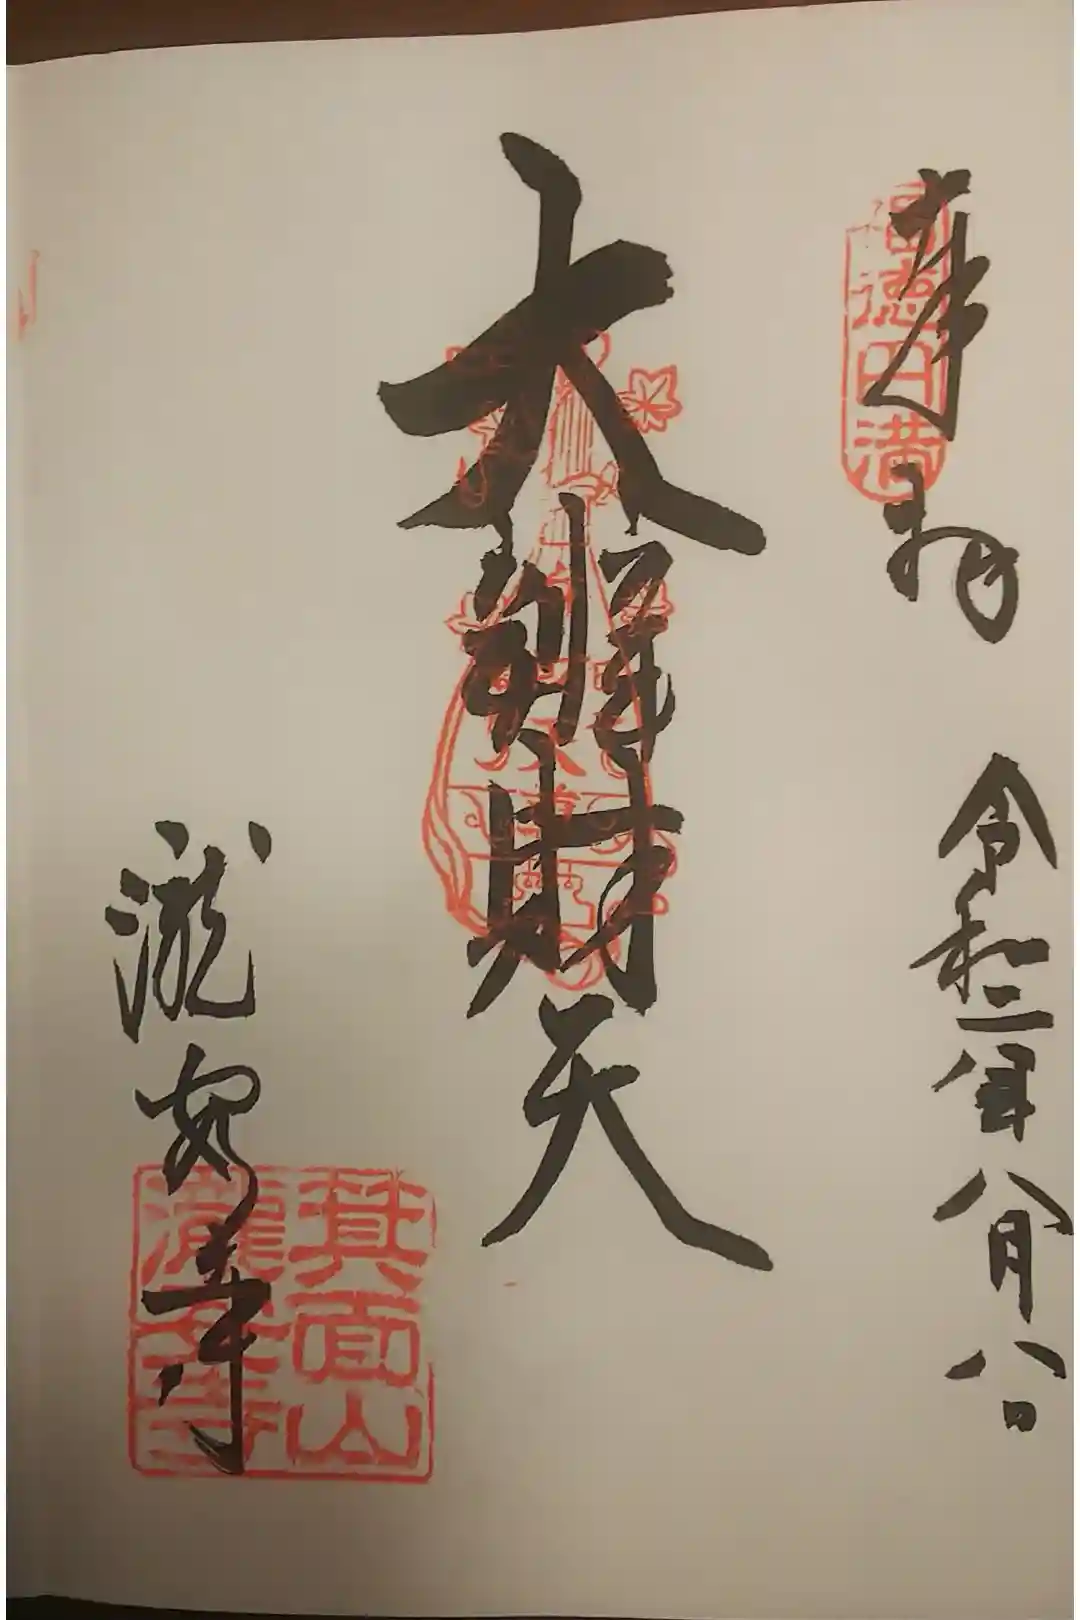 奉拝
令和二年八月八日
福徳円満
大辨財天
瀧安寺
箕面山
瀧安寺